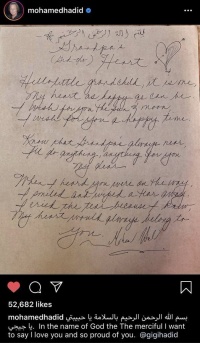 mohamedhadid
بسم الله الرحمن الرحيم
Grandpa's
Heart
Hello little grandchild, it is me,
My heart as happy as can be
I wish for you the sun & moon
I wish for you a happy time
Know that Grandpa's always near
I'll do anything, anything for you
my dear
When I heard you were on the way,
I smiled and wiped a tear away
I cried the tear because I knew
My heart would always belong to
You
52,682 likes
mohamedhadid بسم الله الرحمن الرحيم بالسلامة يا حبيبتي
يا جيجي. In the name of God the The merciful I want
to say I love you and so proud of you. @gigihadid